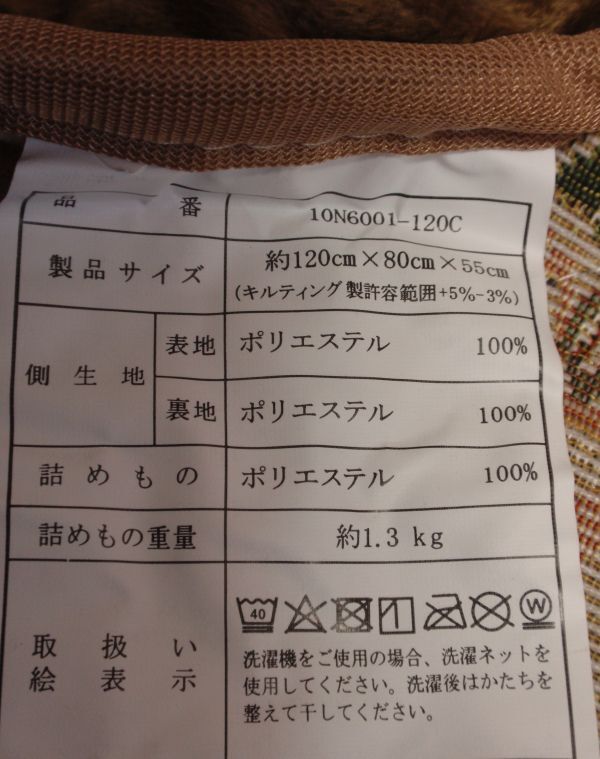 品番 10N6001-120C
製品サイズ 約120cm×80cm×55cm
(キルティング製許容範囲+5%-3%)
側生地 表地 ポリエステル 100%
裏地 ポリエステル 100%
詰めもの ポリエステル 100%
詰めもの重量 約1.3 kg
取扱い
絵表示
40 W
洗濯機をご使用の場合、洗濯ネットを
使用してください。洗濯後はかたちを
整えて干してください。